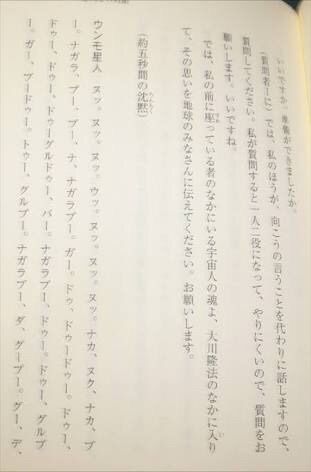 いいですか。準備ができましたか。
（質問者Ｉに）では、私のほうが、向こうの言うことを代わりに話しますので、
質問してください。私が質問すると一人二役になって、やりにくいので、質問をお
願いします。いいですね。
では、私の前に座っている者のなかにいる宇宙人の魂よ、大川隆法のなかに入り
て、その思いを地球のみなさんに伝えてください。お願いします。
（約五秒間の沈黙）
ウンモ星人　ヌッ。ヌッ。ヌッ。ウッ。ヌッ。ヌッ。ヌッ。ナカ、ヌク、ナカ、ブ
ー。ナガラ、ブー、ブー、ナ、ナガラブー。ガー。ドゥ、ドゥードゥー。ドゥー、
ドゥー、ドゥー、ドゥーグルドゥー、バー。ドゥー、ドゥー。ドゥー、グルブ
ー。ガー、ブードゥー。トゥー、グルブー。ナガラブー、ダ、グーブー。グー、デ、